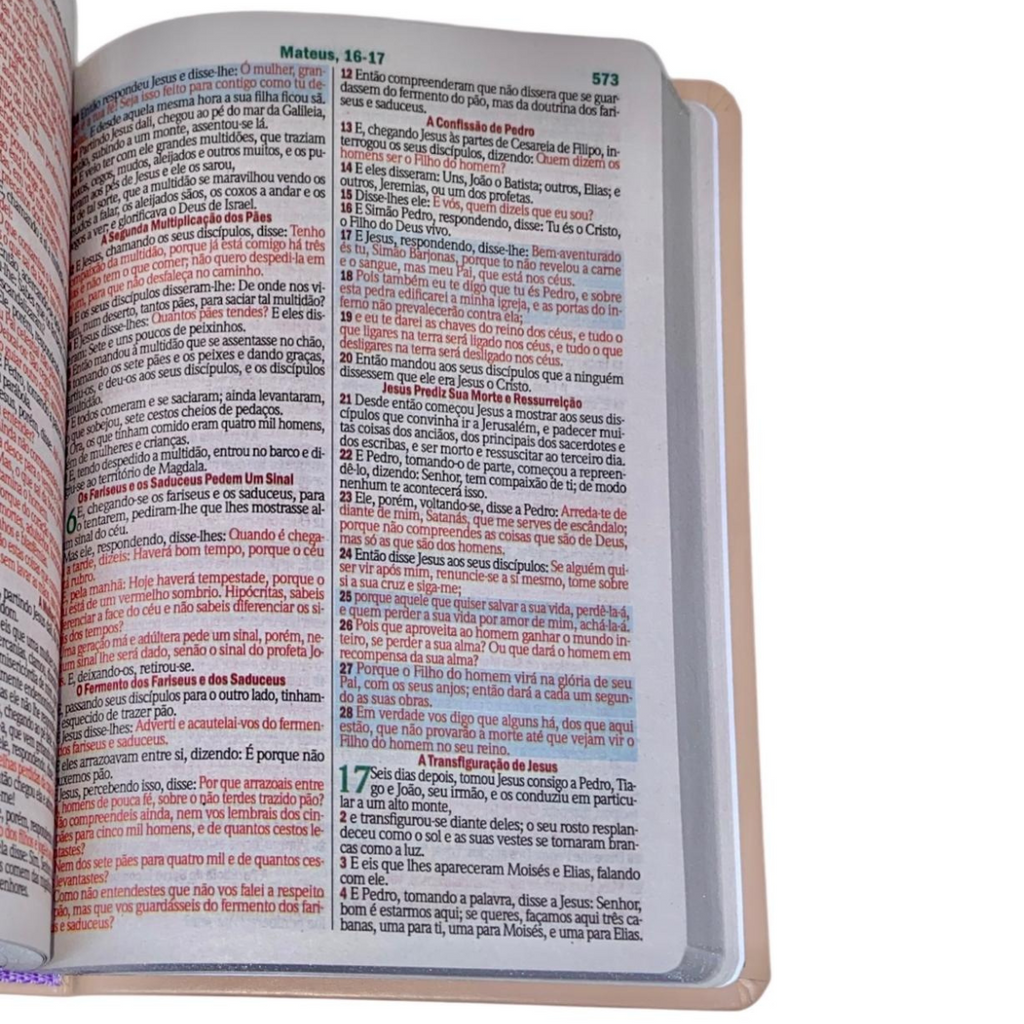 Mateus, 16-17
573
respondeu Jesus e disse-lhe: Ó mulher, gran-
fé! Seja isso feito para contigo como tu de-
E desde aquela mesma hora a sua filha ficou sã.
Partindo Jesus dali, chegou ao pé do mar da Galileia,
subindo a um monte, assentou-se lá.
E veio ter com ele grandes multidões, que traziam
cegos, mudos, aleijados e outros muitos, e os pu-
aos pés de Jesus e ele os sarou,
de tal sorte, que a multidão se maravilhou vendo os
a falar, os aleijados sãos, os coxos a andar e os
a ver; e glorificava o Deus de Israel.
A Segunda Multiplicação dos Pães
E Jesus, chamando os seus discípulos, disse: Tenho
da multidão, porque já está comigo há três
e não tem o que comer; não quero despedi-la em
para que não desfaleça no caminho.
E os seus discípulos disseram-lhe: De onde nos vi-
num deserto, tantos pães, para saciar tal multidão?
Jesus disse-lhes: Quantos pães tendes? E eles dis-
Sete e uns poucos de peixinhos.
Então mandou à multidão que se assentasse no chão,
tomando os sete pães e os peixes e dando graças,
e deu-os aos seus discípulos, e os discípulos
multidão.
E todos comeram e se saciaram; ainda levantaram,
que sobejou, sete cestos cheios de pedaços.
Ora, os que tinham comido eram quatro mil homens,
de mulheres e crianças.
E, tendo despedido a multidão, entrou no barco e di-
ao território de Magdala.
Os Fariseus e os Saduceus Pedem Um Sinal
6 E, chegando-se os fariseus e os saduceus, para
o tentarem, pediram-lhe que lhes mostrasse al-
sinal do céu.
Mas ele, respondendo, disse-lhes: Quando é chega-
a tarde, dizeis: Haverá bom tempo, porque o céu
rubro.
pela manhã: Hoje haverá tempestade, porque o
está de um vermelho sombrio. Hipócritas, sabeis
a face do céu e não sabeis diferenciar os si-
dos tempos?
geração má e adúltera pede um sinal, porém, ne-
sinal lhe será dado, senão o sinal do profeta Jo-
E, deixando-os, retirou-se.
O Fermento dos Fariseus e dos Saduceus
passando seus discípulos para o outro lado, tinham-
esquecido de trazer pão.
Jesus disse-lhes: Adverti e acautelai-vos do fermen-
dos fariseus e saduceus.
eles arrazoavam entre si, dizendo: É porque não
pão.
Jesus, percebendo isso, disse: Por que arrazoais entre
homens de pouca fé, sobre o não terdes trazido pão?
compreendeis ainda, nem vos lembrais dos cin-
pães para cinco mil homens, e de quantos cestos le-
Nem dos sete pães para quatro mil e de quantos ces-
levantastes?
Como não entendestes que não vos falei a respeito
pão, mas que vos guardásseis do fermento dos fari-
e saduceus?
12 Então compreenderam que não dissera que se guar-
dassem do fermento do pão, mas da doutrina dos fari-
seus e saduceus.
A Confissão de Pedro
13 E, chegando Jesus às partes de Cesareia de Filipo, in-
terrogou os seus discípulos, dizendo: Quem dizem os
homens ser o Filho do homem?
14 E eles disseram: Uns, João o Batista; outros, Elias; e
outros, Jeremias, ou um dos profetas.
15 Disse-lhes ele: E vós, quem dizeis que eu sou?
16 E Simão Pedro, respondendo, disse: Tu és o Cristo,
o Filho do Deus vivo.
17 E Jesus, respondendo, disse-lhe: Bem-aventurado
és tu, Simão Barjonas, porque to não revelou a carne
e o sangue, mas meu Pai, que está nos céus.
18 Pois também eu te digo que tu és Pedro, e sobre
esta pedra edificarei a minha igreja, e as portas do in-
ferno não prevalecerão contra ela;
19 e eu te darei as chaves do reino dos céus, e tudo o
que ligares na terra será ligado nos céus, e tudo o que
desligares na terra será desligado nos céus.
20 Então mandou aos seus discípulos que a ninguém
dissessem que ele era Jesus o Cristo.
Jesus Prediz Sua Morte e Ressurreição
21 Desde então começou Jesus a mostrar aos seus dis-
cípulos que convinha ir a Jerusalém, e padecer mui-
tas coisas dos anciãos, dos principais dos sacerdotes e
dos escribas, e ser morto e ressuscitar ao terceiro dia.
22 E Pedro, tomando-o de parte, começou a repreen-
dê-lo, dizendo: Senhor, tem compaixão de ti; de modo
nenhum te acontecerá isso.
23 Ele, porém, voltando-se, disse a Pedro: Arreda-te de
diante de mim, Satanás, que me serves de escândalo;
porque não compreendes as coisas que são de Deus,
mas só as que são dos homens.
24 Então disse Jesus aos seus discípulos: Se alguém qui-
ser vir após mim, renuncie-se a si mesmo, tome sobre
si a sua cruz e siga-me;
25 porque aquele que quiser salvar a sua vida, perdê-la-á,
e quem perder a sua vida por amor de mim, achá-la-á.
26 Pois que aproveita ao homem ganhar o mundo in-
teiro, se perder a sua alma? Ou que dará o homem em
recompensa da sua alma?
27 Porque o Filho do homem virá na glória de seu
Pai, com os seus anjos; então dará a cada um segun-
do as suas obras.
28 Em verdade vos digo que alguns há, dos que aqui
estão, que não provarão a morte até que vejam vir o
Filho do homem no seu reino.
A Transfiguração de Jesus
17 Seis dias depois, tomou Jesus consigo a Pedro, Tia-
go e João, seu irmão, e os conduziu em particu-
lar a um alto monte,
2 e transfigurou-se diante deles; o seu rosto resplan-
deceu como o sol e as suas vestes se tornaram bran-
cas como a luz.
3 E eis que lhes apareceram Moisés e Elias, falando
com ele.
4 E Pedro, tomando a palavra, disse a Jesus: Senhor,
bom é estarmos aqui; se queres, façamos aqui três ca-
banas, uma para ti, uma para Moisés, e uma para Elias.